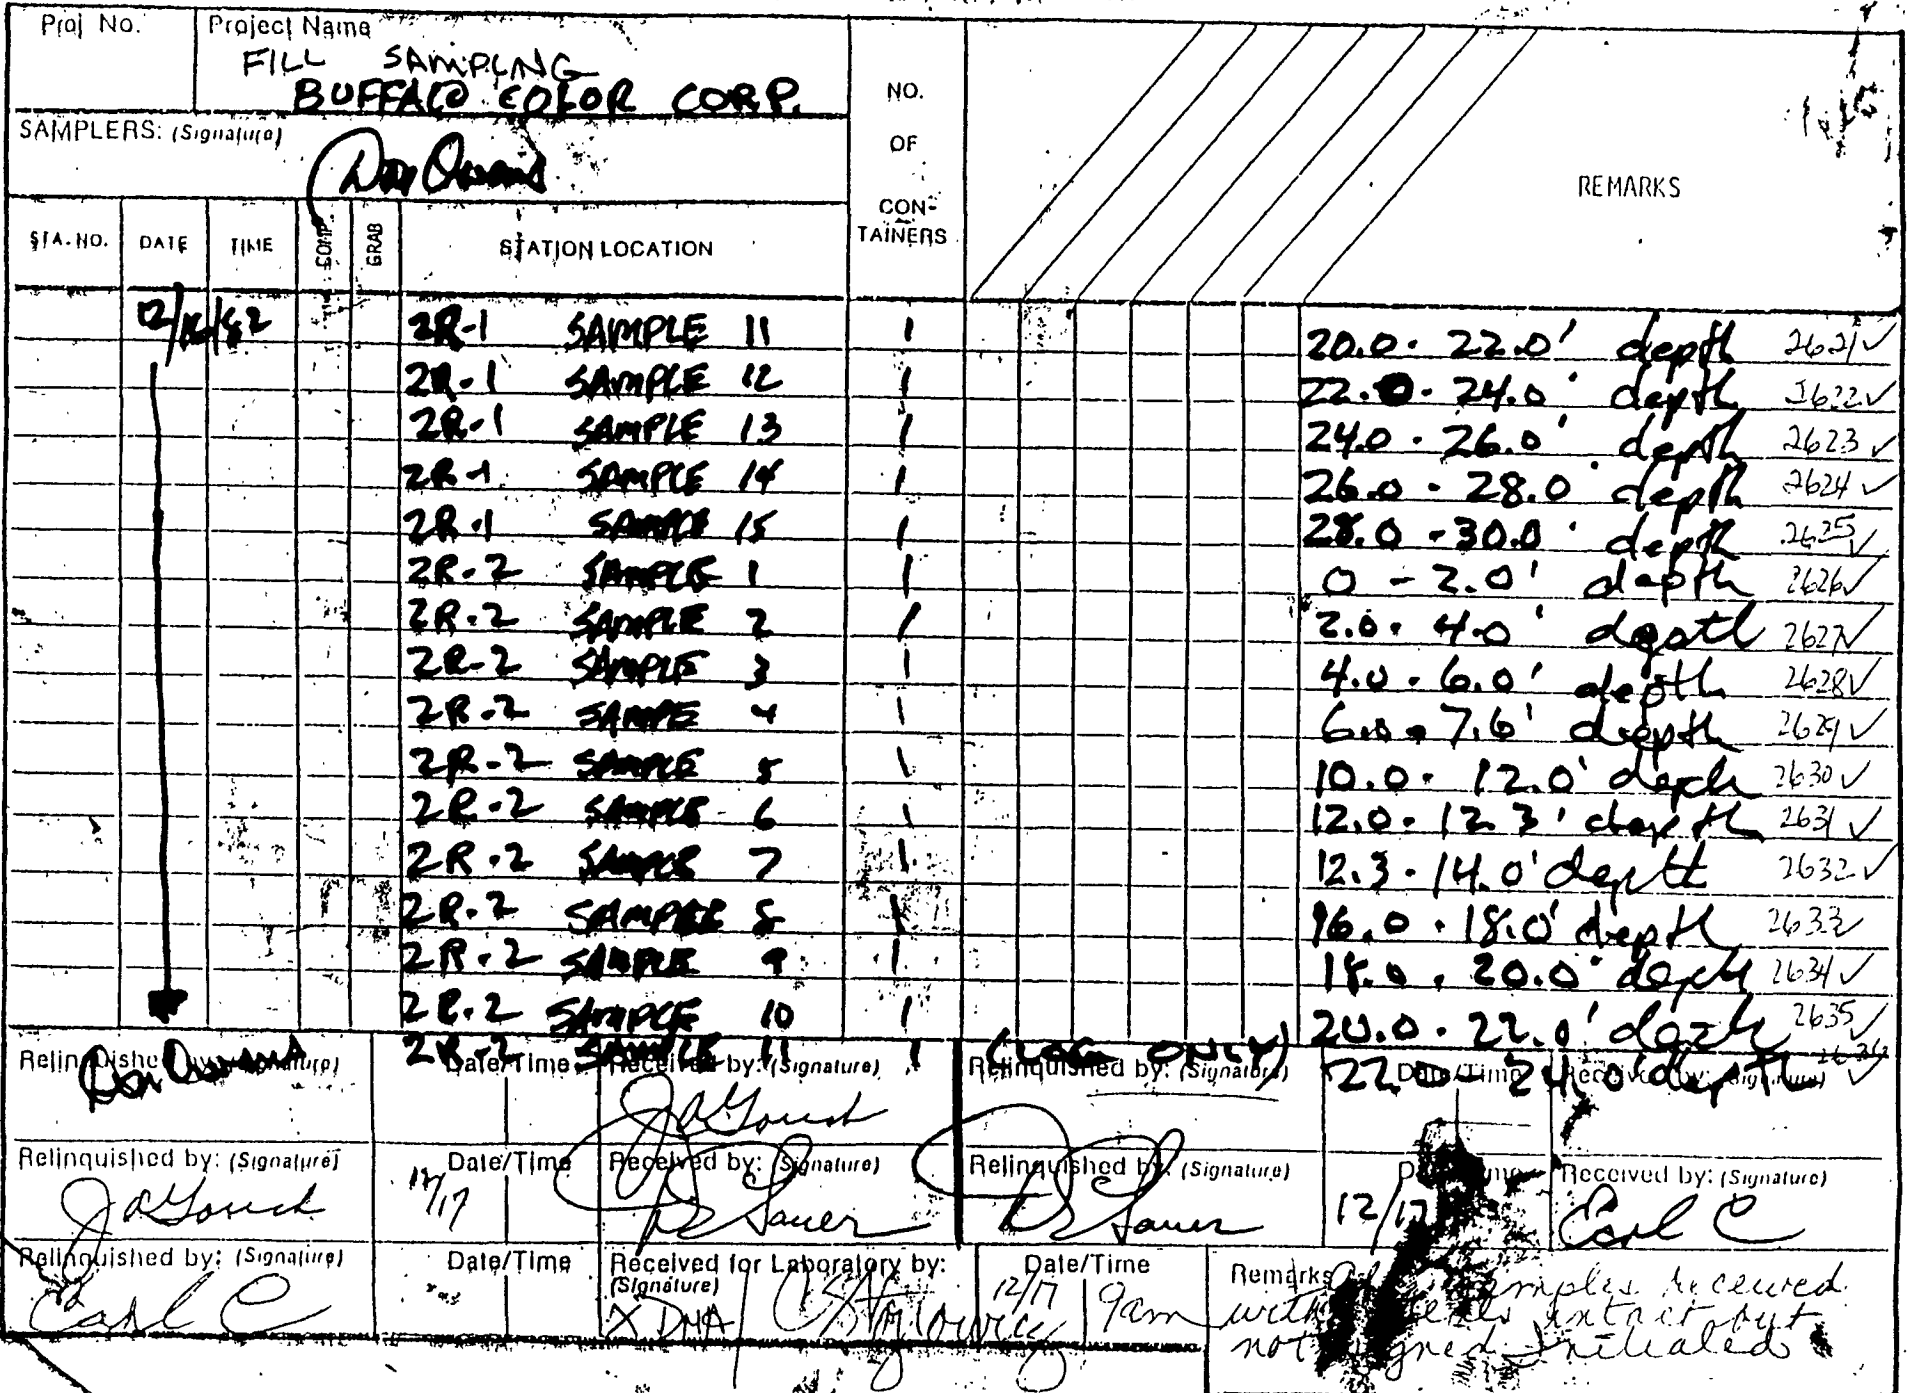 Proj No. Project Name
FILL SAMPLING
BUFFALO COLOR CORP.
SAMPLERS: (Signature)
Don Owens
NO.
OF
CON-
TAINERS
REMARKS
STA. NO. DATE TIME COMP. GRAB STATION LOCATION
12/16/82 2R-1 SAMPLE 11 1 20.0 - 22.0' depth 2621 ✓
2R-1 SAMPLE 12 1 22.0 - 24.0' depth 2622 ✓
2R-1 SAMPLE 13 1 24.0 - 26.0' depth 2623 ✓
2R-1 SAMPLE 14 1 26.0 - 28.0' depth 2624 ✓
2R-1 SAMPLE 15 1 28.0 - 30.0' depth 2625 ✓
2R-2 SAMPLE 1 1 0 - 2.0' depth 2626 ✓
2R-2 SAMPLE 2 1 2.0 - 4.0' depth 2627 ✓
2R-2 SAMPLE 3 1 4.0 - 6.0' depth 2628 ✓
2R-2 SAMPE 4 1 6.0 - 7.6' depth 2629 ✓
2R-2 SAMPLE 5 1 10.0 - 12.0' depth 2630 ✓
2R-2 SAMPLE 6 1 12.0 - 12.3' depth 2631 ✓
2R-2 SAMPLE 7 1 12.3 - 14.0' depth 2632 ✓
2R-2 SAMPLE 8 1 16.0 - 18.0' depth 2633 ✓
2R-2 SAMPLE 9 1 18.0 - 20.0' depth 2634 ✓
2R-2 SAMPLE 10 1 20.0 - 22.0' depth 2635 ✓
2R-2 SAMPLE 11 1 (LOGE ONLY) 22.0 - 24.0' depth 2636 ✓
Relinquished by: (Signature) Date/Time Received by: (Signature) Relinquished by: (Signature) Date/Time Received by: (Signature)
Don Owens
Relinquished by: (Signature) Date/Time Received by: (Signature) Relinquished by: (Signature) Date/Time Received by: (Signature)
12/17 12/17 Earl C
Relinquished by: (Signature) Date/Time Received for Laboratory by: (Signature) Date/Time Remarks
Earl C X DNA 12/17 9am
samples received
with seals intact but
not signed initialed